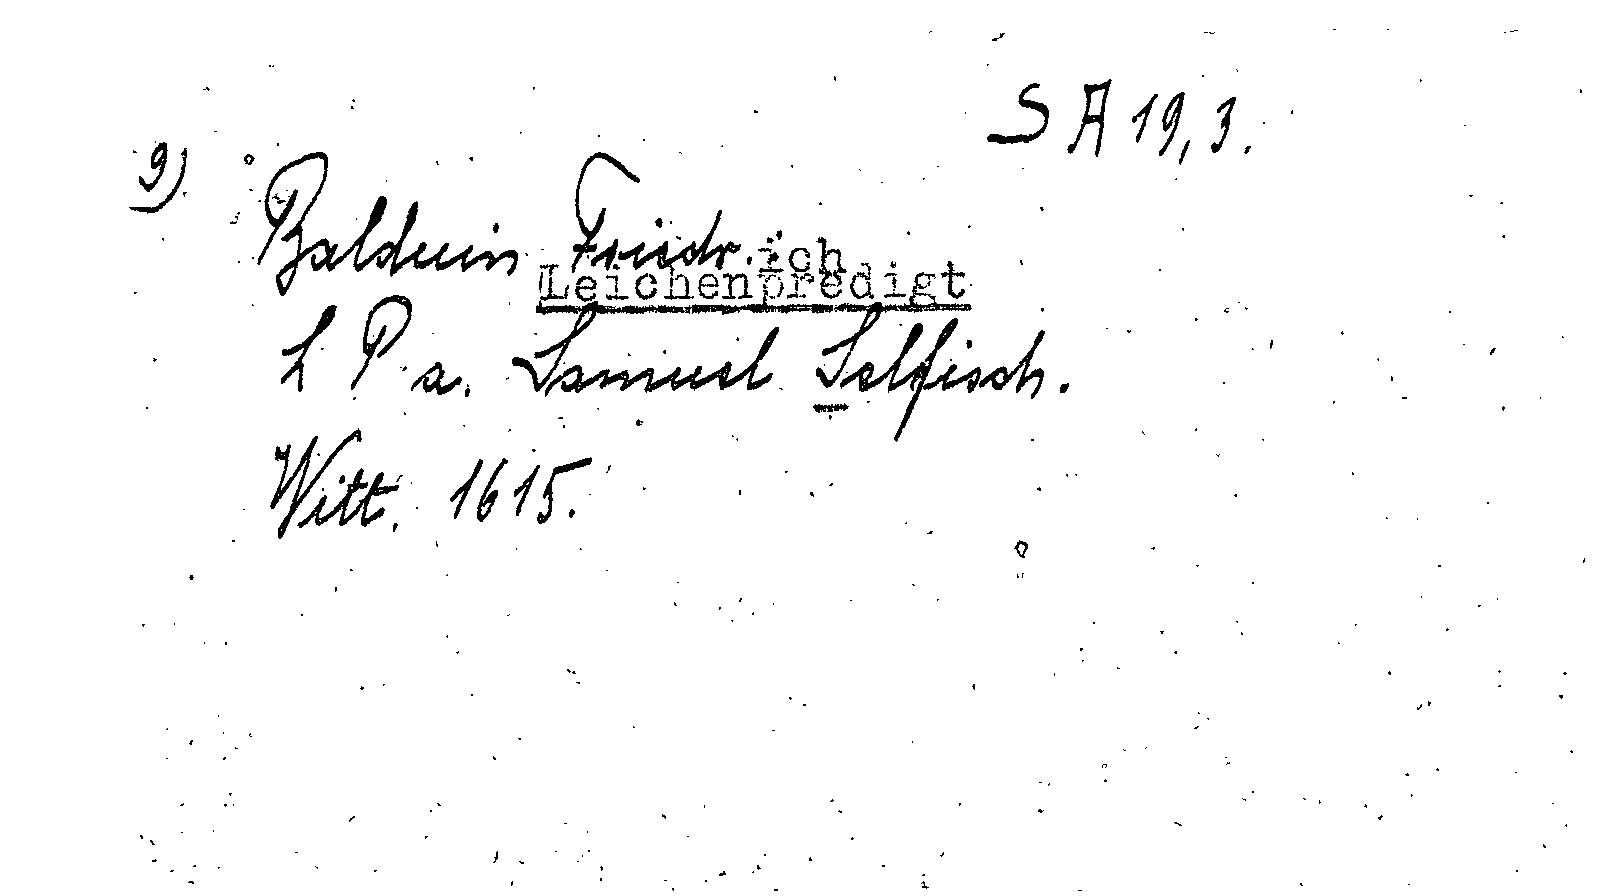 S A 19,3.
9)
Balduin Friedr.ich
Leichenpredigt
L P a. Samuel Selfisch.
Witt. 1615.